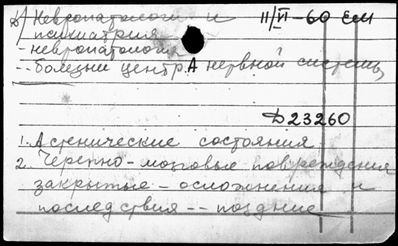 Невропатология и 11/VI-60 ЕМ
психиатрия
- невропатология
-- болезни центр. А нервной системы
Д23260
1. Астенические состояния
2. Черепно-мозговые повреждения
закрытые - осложнения и
последствия -- поздние